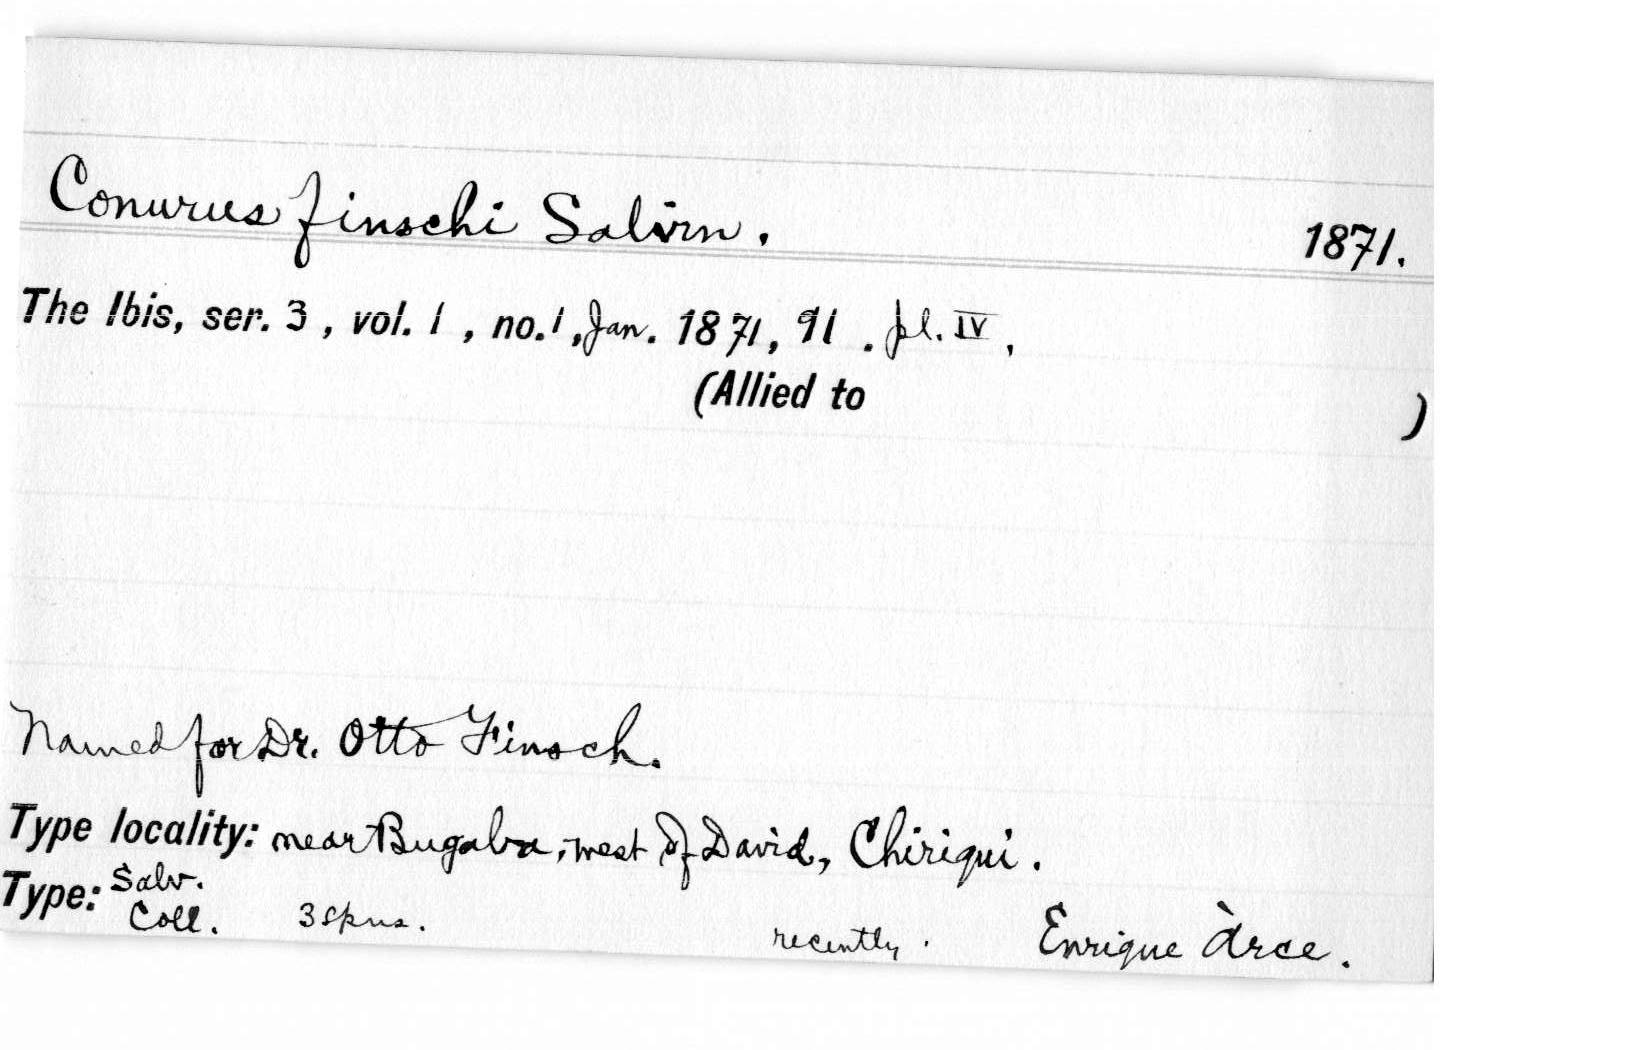 Conurus finschi Salvin. 1871.
The Ibis, ser. 3, vol. 1, no. 1, Jan. 1871, 91. pl. IV.
(Allied to )
Named for Dr. Otto Finsch.
Type locality: near Bugaba, west of David, Chiriqui.
Type: Salv. Coll. 3 spns. recently. Enrique Àrce.